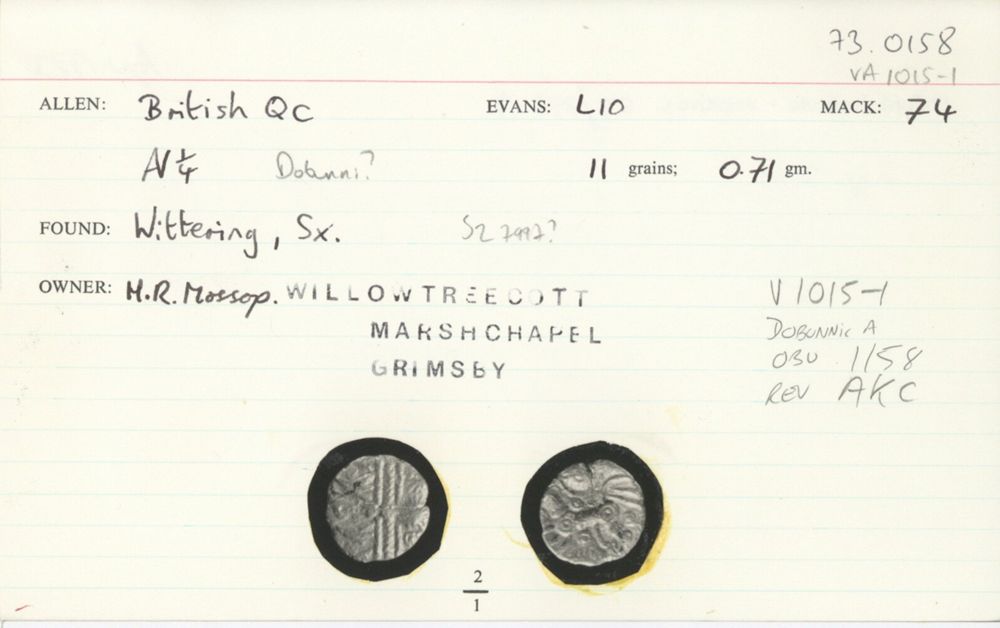 73.0158
VA 1015-1
ALLEN: British QC EVANS: L10 MACK: 74
N ¼ Dobunni? 11 grains; 0.71 gm.
FOUND: Wittering, Sx. S2 7997?
OWNER: H.R. Mossop. WILLOWTREECOTT V1015-1
MARSHCHAPEL DOBUNNIC A
GRIMSBY OBV 1158
REV AKC
2
1